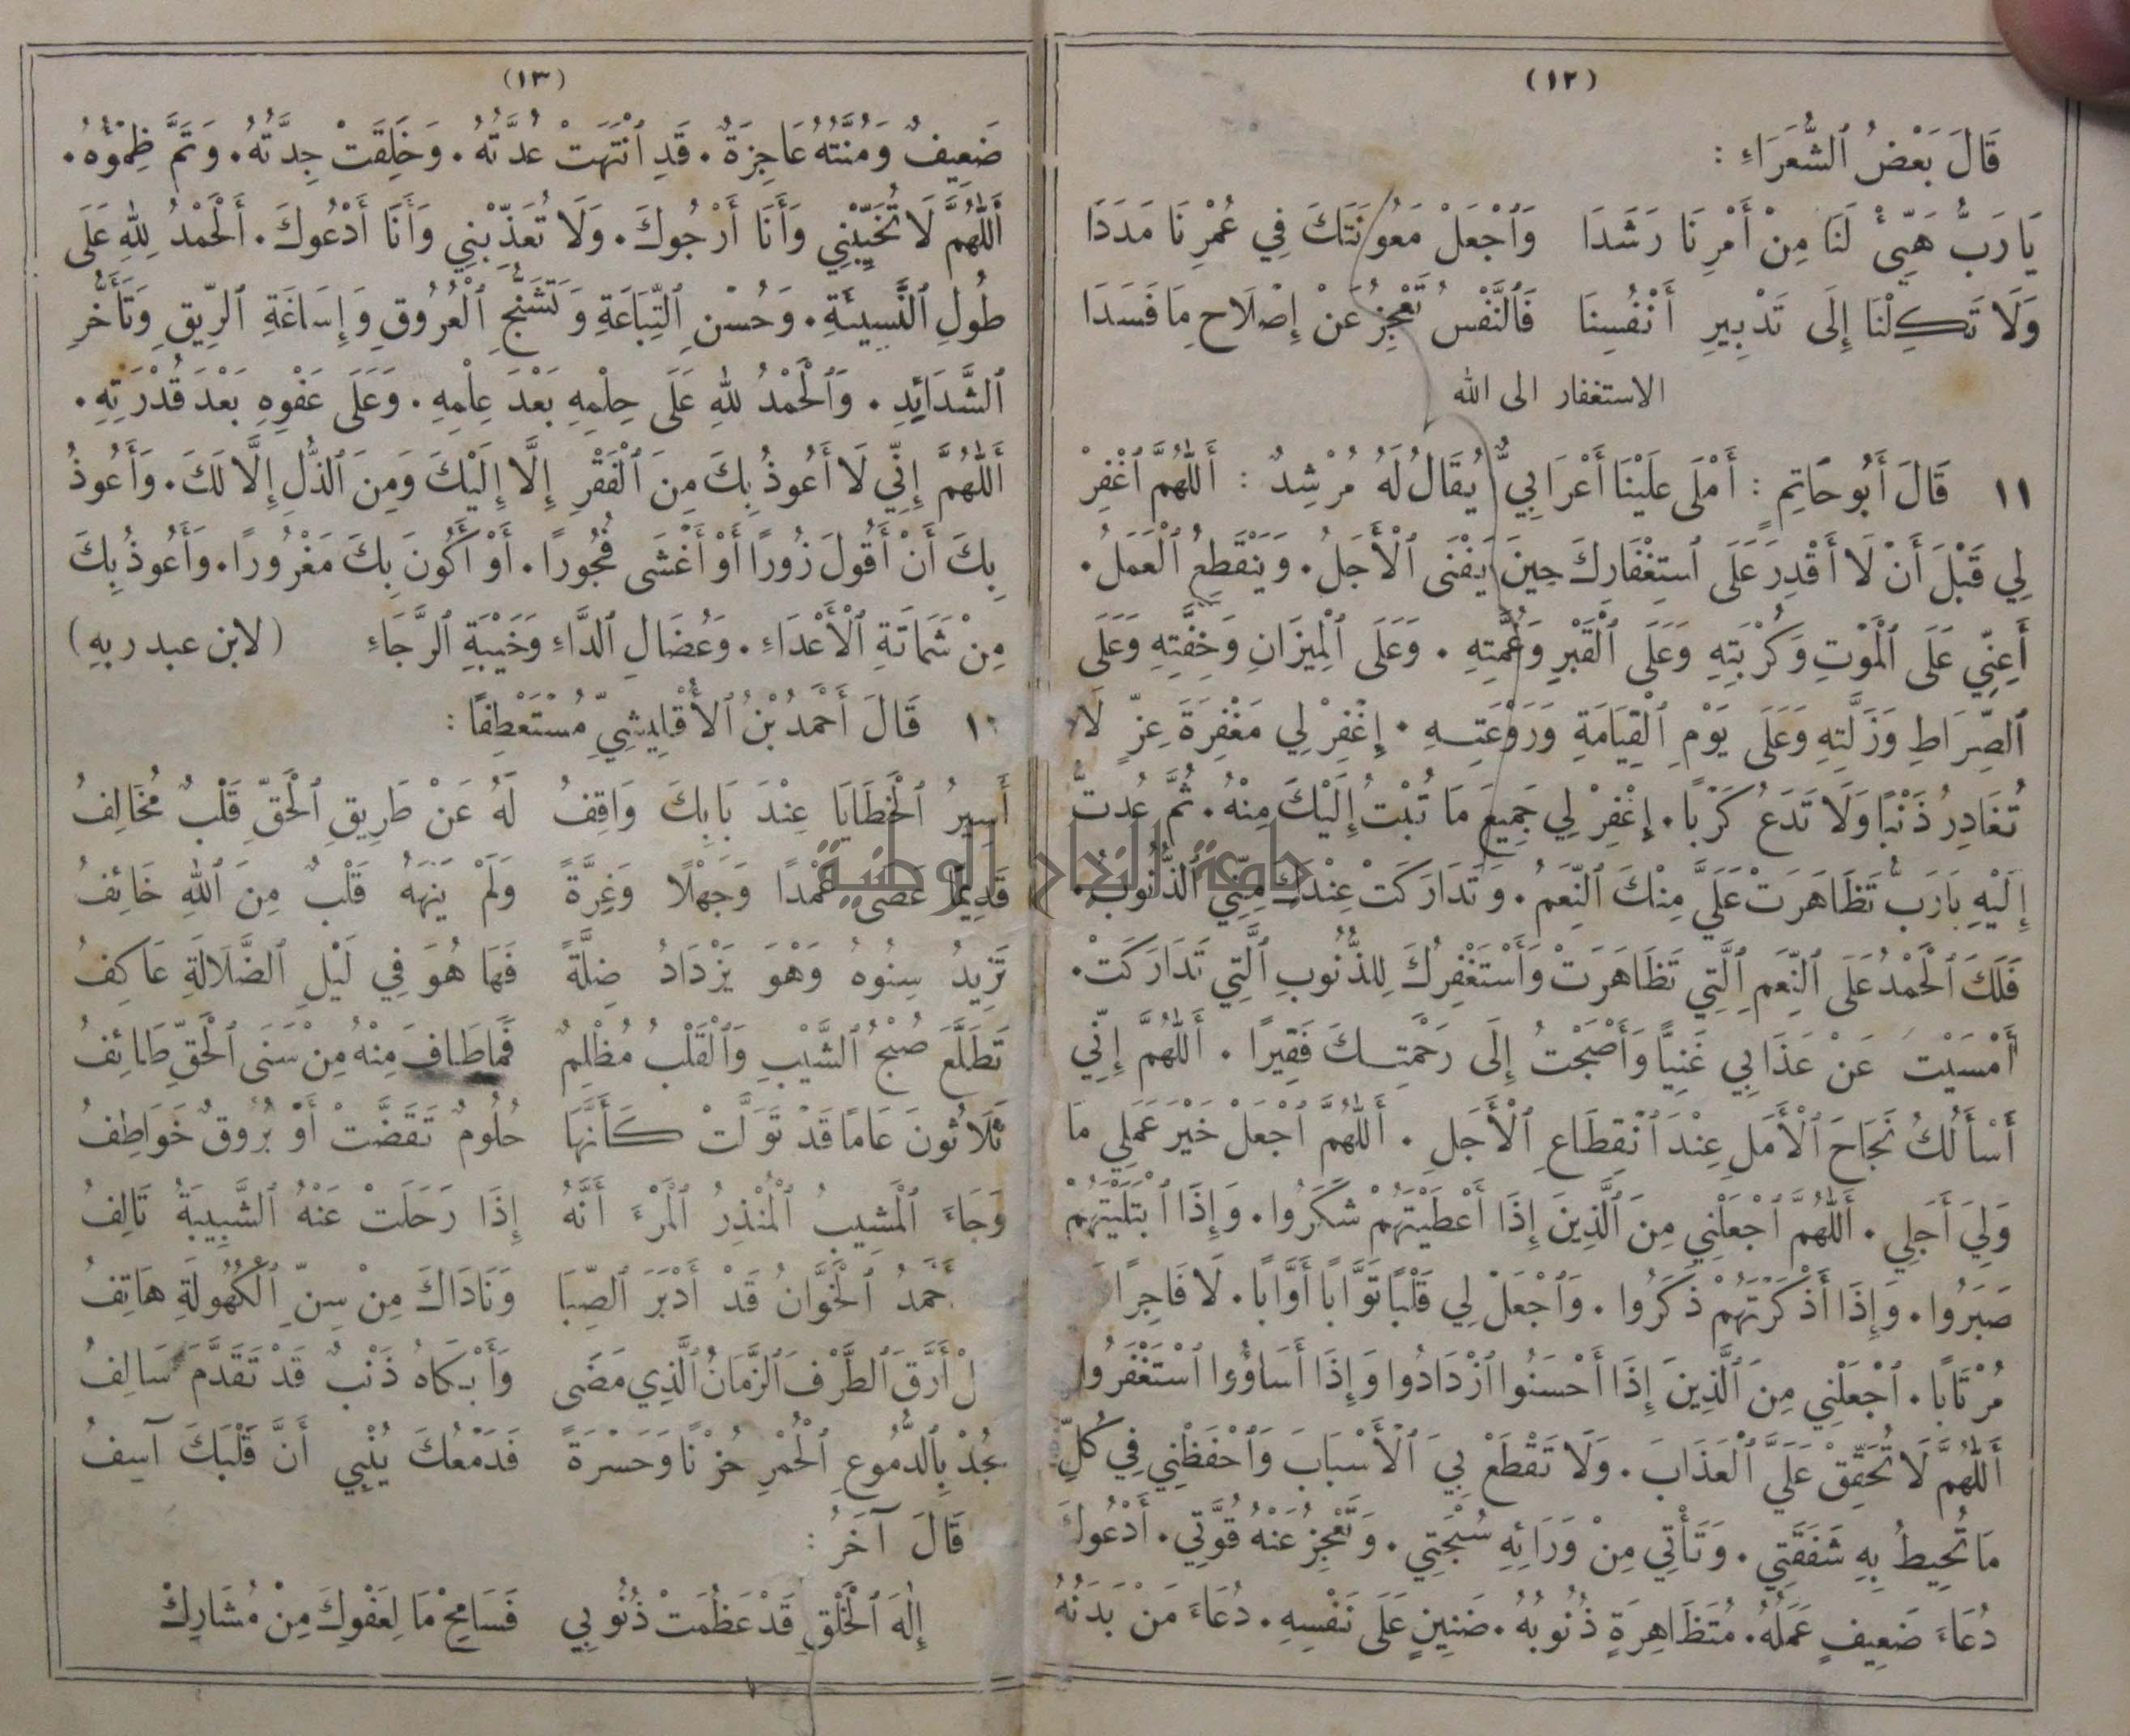 (١٢)
قَالَ بَعْضُ ٱلشُّعَرَاءِ :
يَا رَبُّ هَيِّئْ لَنَا مِنْ أَمْرِنَا رَشَدَا وَٱجْعَلْ مَعُونَتَكَ فِي عُمْرِنَا مَدَدَا
وَلَا تَكِلْنَا إِلَى تَدْبِيرِ أَنْفُسِنَا فَٱلنَّفْسُ تَعْجِزُ عَنْ إِصْلَاحِ مَا فَسَدَا
الاستغفار الى الله
١١ قَالَ أَبُو حَاتِمٍ : أَمْلَى عَلَيْنَا أَعْرَابِيٌّ يُقَالُ لَهُ مُرْشِدٌ : أَللّٰهُمَّ ٱغْفِرْ
لِي قَبْلَ أَنْ لَا أَقْدِرَ عَلَى ٱسْتِغْفَارِكَ حِينَ يَفْنَى ٱلْأَجَلُ. وَيَنْقَطِعُ ٱلْعَمَلُ.
أَعِنِّي عَلَى ٱلْمَوْتِ وَكُرْبَتِهِ وَعَلَى ٱلْقَبْرِ وَغُمَّتِهِ . وَعَلَى ٱلْمِيزَانِ وَخِفَّتِهِ وَعَلَى
ٱلصِّرَاطِ وَزَلَّتِهِ وَعَلَى يَوْمِ ٱلْقِيَامَةِ وَرَوْعَتِهِ . إِغْفِرْ لِي مَغْفِرَةَ عِزٍّ لَا
تُغَادِرُ ذَنْبًا وَلَا تَدَعُ كَرْبًا. إِغْفِرْ لِي جَمِيعَ مَا تُبْتُ إِلَيْكَ مِنْهُ. ثُمَّ عُدتُّ
إِلَيْهِ يَا رَبُّ تَظَاهَرَتْ عَلَيَّ مِنْكَ ٱلنِّعَمُ. وَتَدَارَكَتْ عِنْدَكَ مِنِّي ٱلذُّنُوبُ.
فَلَكَ ٱلْحَمْدُ عَلَى ٱلنِّعَمِ ٱلَّتِي تَظَاهَرَتْ وَأَسْتَغْفِرُكَ لِلذُّنُوبِ ٱلَّتِي تَدَارَكَتْ.
أَمْسَيْتَ عَنْ عَذَابِي غَنِيًّا وَأَصْبَحْتُ إِلَى رَحْمَتِكَ فَقِيرًا . أَللّٰهُمَّ إِنِّي
أَسْأَلُكَ نَجَاحَ ٱلْأَمَلِ عِنْدَ ٱنْقِطَاعِ ٱلْأَجَلِ . أَللّٰهُمَّ ٱجْعَلْ خَيْرَ عَمَلِي مَا
وَلِيَ أَجَلِي . أَللّٰهُمَّ ٱجْعَلْنِي مِنَ ٱلَّذِينَ إِذَا أَعْطَيْتَهُمْ شَكَرُوا. وَإِذَا ٱبْتَلَيْتَهُمْ
صَبَرُوا. وَإِذَا أَذْكَرْتَهُمْ ذَكَرُوا . وَٱجْعَلْ لِي قَلْبًا تَوَّابًا أَوَّابًا. لَا فَاجِرًا
مُرْتَابًا. ٱجْعَلْنِي مِنَ ٱلَّذِينَ إِذَا أَحْسَنُوا ٱزْدَادُوا وَإِذَا أَسَاؤُوا ٱسْتَغْفَرُوا
أَللّٰهُمَّ لَا تُحَقِّقْ عَلَيَّ ٱلْعَذَابَ . وَلَا تَقْطَعْ بِيَ ٱلْأَسْبَابَ وَٱحْفَظْنِي فِي كُلِّ
مَا تُحِيطُ بِهِ شَفَقَتِي . وَتَأْتِي مِنْ وَرَائِهِ سُبْحَتِي . وَتَعْجِزُ عَنْهُ قُوَّتِي . أَدْعُوكَ
دُعَاءَ ضَعِيفٍ عَمَلُهُ. مُتَظَاهِرَةٍ ذُنُوبُهُ. ضَنِينٍ عَلَى نَفْسِهِ. دُعَاءَ مَنْ بَدَنُهُ
(١٣)
ضَعِيفٌ وَمُنَّتُهُ عَاجِزَةٌ . قَدِ ٱنْتَهَتْ عُدَّتُهُ . وَخَلِقَتْ جِدَّتُهُ. وَتَمَّ ظِمْؤُهُ.
أَللّٰهُمَّ لَا تُخَيِّبْنِي وَأَنَا أَرْجُوكَ. وَلَا تُعَذِّبْنِي وَأَنَا أَدْعُوكَ. أَلْحَمْدُ لِلّٰهِ عَلَى
طُولِ ٱلنَّسِيئَةِ. وَحُسْنِ ٱلتِّبَاعَةِ وَتَشَنُّجِ ٱلْعُرُوقِ وَإِسَاغَةِ ٱلرِّيقِ وَتَأَخُّرِ
ٱلشَّدَائِدِ . وَٱلْحَمْدُ لِلّٰهِ عَلَى حِلْمِهِ بَعْدَ عِلْمِهِ. وَعَلَى عَفْوِهِ بَعْدَ قُدْرَتِهِ.
أَللّٰهُمَّ إِنِّي لَا أَعُوذُ بِكَ مِنَ ٱلْفَقْرِ إِلَّا إِلَيْكَ وَمِنَ ٱلذُّلِ إِلَّا لَكَ. وَأَعُوذُ
بِكَ أَنْ أَقُولَ زُورًا أَوْ أَغْشَى فُجُورًا. أَوْ أَكُونَ بِكَ مَغْرُورًا. وَأَعُوذُ بِكَ
مِنْ شَمَاتَةِ ٱلْأَعْدَاءِ. وَعُضَالِ ٱلدَّاءِ وَخَيْبَةِ ٱلرَّجَاءِ (لابن عبد ربهِ)
قَالَ أَحْمَدُ بْنُ ٱلْأَقْلِيشِيِّ مُسْتَعْطِفًا :
أَسِيرُ ٱلْخَطَايَا عِنْدَ بَابِكَ وَاقِفُ لَهُ عَنْ طَرِيقِ ٱلْحَقِّ قَلْبٌ مُخَالِفُ
قَدِيمًا عَصَى عَمْدًا وَجَهْلًا وَغِرَّةً وَلَمْ يَنْهَهُ قَلْبٌ مِنَ ٱللّٰهِ خَائِفُ
تَزِيدُ سِنُوهُ وَهْوَ يَزْدَادُ ضِلَّةً فَهَا هُوَ فِي لَيْلِ ٱلضَّلَالَةِ عَاكِفُ
تَطَلَّعَ صُبْحُ ٱلشَّيْبِ وَٱلْقَلْبُ مُظْلِمٌ فَمَا طَافَ مِنْهُ مِنْ سَنَى ٱلْحَقِّ طَائِفُ
ثَلَاثُونَ عَامًا قَدْ تَوَلَّتْ كَأَنَّهَا حُلُومٌ تَقَضَّتْ أَوْ بُرُوقٌ خَوَاطِفُ
وَجَاءَ ٱلْمَشِيبُ ٱلْمُنْذِرُ ٱلْمَرْءَ أَنَّهُ إِذَا رَحَلَتْ عَنْهُ ٱلشَّبِيبَةُ تَالِفُ
ٱلْخَوَّانُ قَدْ أَدْبَرَ ٱلصِّبَا وَنَادَاكَ مِنْ سِنِّ ٱلْكُهُولَةِ هَاتِفُ
أَرَّقَ ٱلطَّرْفَ ٱلزَّمَانُ ٱلَّذِي مَضَى وَأَبْكَاهُ ذَنْبٌ قَدْ تَقَدَّمَ سَالِفُ
بِٱلدُّمُوعِ ٱلْحُمْرِ حُزْنًا وَحَسْرَةً فَدَمْعُكَ يُنْبِي أَنَّ قَلْبَكَ آسِفُ
قَالَ آخَرُ :
إِلٰهَ ٱلْخَلْقِ قَدْ عَظُمَتْ ذُنُوبِي فَسَامِحْ مَا لِعَفْوِكَ مِنْ مُشَارِكْ
جامعة النجاح الوطنية